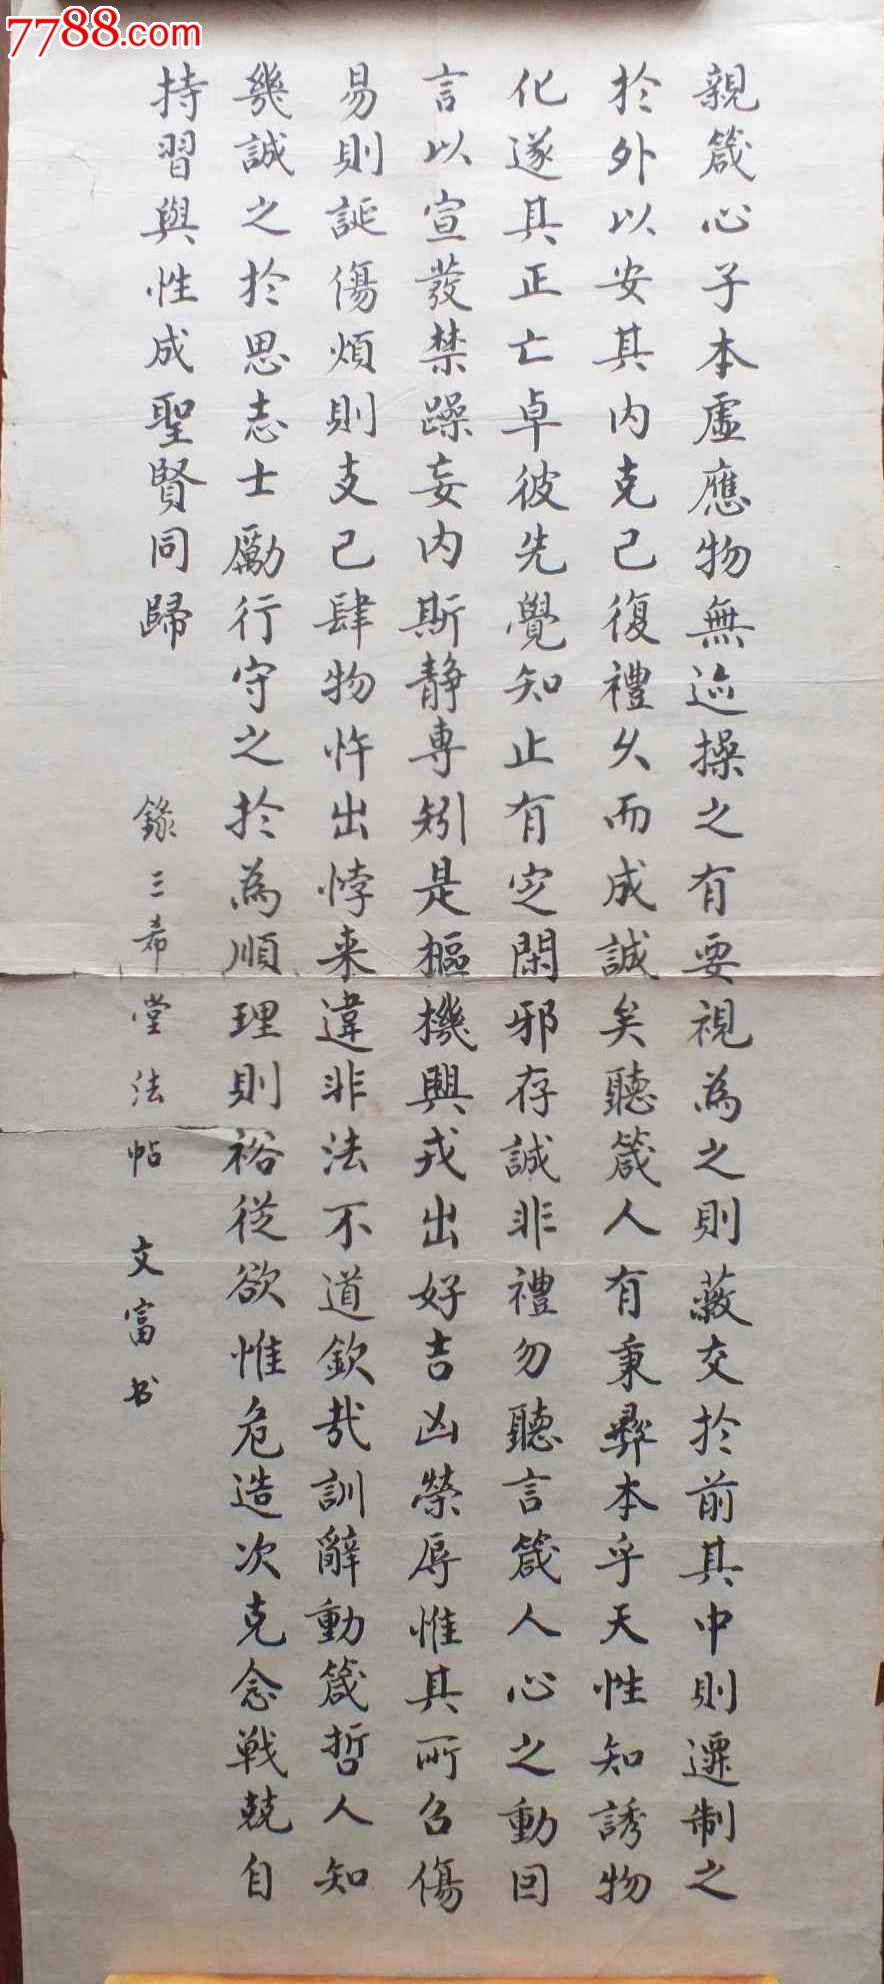 7788.com
中国收藏热线
親箴心子本虛應物無迹操之有要視為之則蔽交於前其中則遷制之
於外以安其內克己復禮久而成誠矣聽箴人有秉彝本乎天性知誘物
化遂其正亡卓彼先覺知止有定閑邪存誠非禮勿聽言箴人心之動因
言以宣發禁躁妄內斯靜專矧是樞機興戎出好吉凶榮辱惟其所召傷
易則誕傷煩則支己肆物忤出悖来違非法不道欽哉訓辭動箴哲人知
幾誠之於思志士勵行守之於為順理則裕從欲惟危造次克念戰兢自
持習與性成聖賢同歸 錄三希堂法帖 文富书